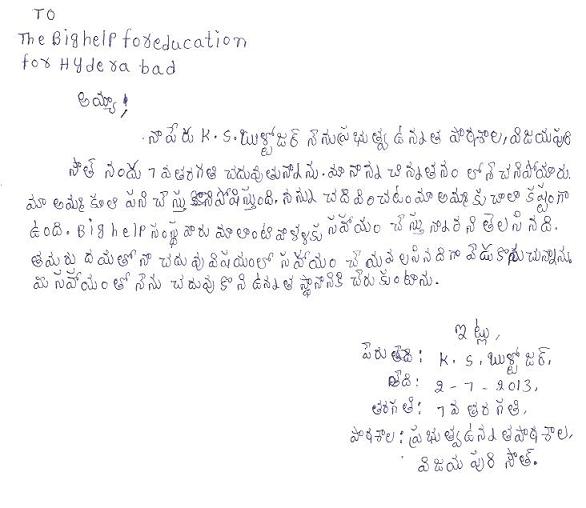 TO
The Bighelp foreducation
for Hyderabad
అయ్యా!
నా పేరు K. S. బుల్డోజర్ నేను ప్రభుత్వ ఉన్నత పాఠశాల, విజయపురి
సౌత్ నందు 7వ తరగతి చదువుతున్నాను. మా నాన్న చిన్నతనం లోనే చనిపోయారు.
మా అమ్మ కూలి పని చేస్తు పోషిస్తుంది. నన్ను చదివించటం మా అమ్మకు చాలా కష్టంగా
ఉంది. Bighelp సంస్థ వారు మాలాంటి వాళ్ళకు సహాయం చేస్తున్నారని తెలిసినది.
తమరు దయతో నా చదువు విషయంలో సహాయం చేయవలసినదిగా వేడుకొనుచున్నాను.
మీ సహాయంతో నేను చదువుకొని ఉన్నత స్థానానికి చేరుకుంటాను.
ఇట్లు,
పేరు : K. S. బుల్డోజర్,
తేది : 2-7-2013,
తరగతి : 7వ తరగతి,
పాఠశాల : ప్రభుత్వ ఉన్నత పాఠశాల,
విజయపురి సౌత్.